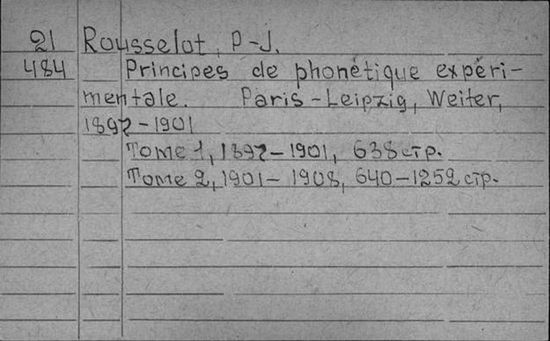 21 Rousselot, P-J.
484 Principes de phonétique expéri-
mentale. Paris-Leipzig, Weiter,
1897-1901
Tome 1, 1897-1901, 638 стр.
Tome 2, 1901-1908, 640-1252 стр.